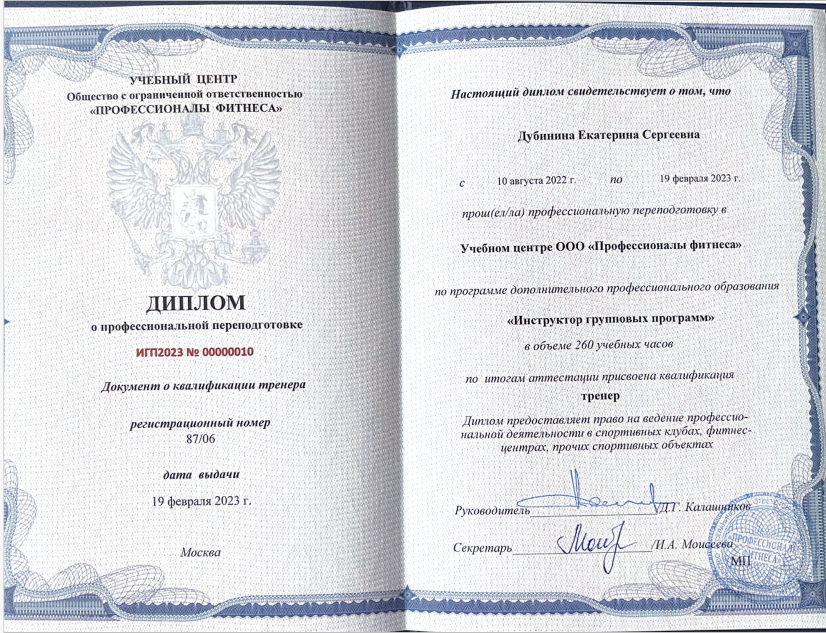 УЧЕБНЫЙ ЦЕНТР
Общество с ограниченной ответственностью
«ПРОФЕССИОНАЛЫ ФИТНЕСА»
ДИПЛОМ
о профессиональной переподготовке
ИГП2023 № 00000010
Документ о квалификации тренера
регистрационный номер
87/06
дата выдачи
19 февраля 2023 г.
Москва
Настоящий диплом свидетельствует о том, что
Дубинина Екатерина Сергеевна
с 10 августа 2022 г. по 19 февраля 2023 г.
прош(ел/ла) профессиональную переподготовку в
Учебном центре ООО «Профессионалы фитнеса»
по программе дополнительного профессионального образования
«Инструктор групповых программ»
в объеме 260 учебных часов
по итогам аттестации присвоена квалификация
тренер
Диплом предоставляет право на ведение профессио-
нальной деятельности в спортивных клубах, фитнес-
центрах, прочих спортивных объектах
Руководитель /Д.Г. Калашников
Секретарь /И.А. Моисеева
МП
«ПРОФЕССИОНАЛЫ
ФИТНЕСА»